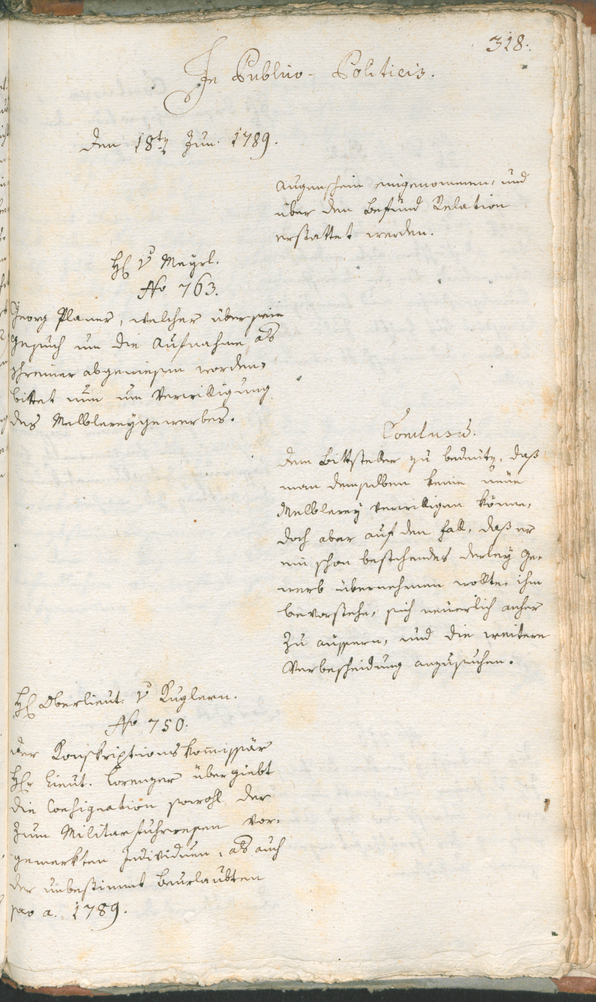 318.
In Publico-Politicis.
den 18ten Jun. 1789.
Augenschein eingenommen, und
über den Befund Relation
erstattet werden.
H v Mayrl.
No 763.
Georg Planer, welcher über sein
Gesuch um die Aufnahme als
Schreiner abgewiesen worden,
bittet nun um Verwilligung
des Melblereygewerbes.
Conclusum.
dem Bittsteller zu bedeuten, daß
man demselben keine neue
Melblerey verwilligen könne,
doch aber auf den Fall, daß er
ein schon bestehendes derley Ge-
werb übernehmen wollte, ihm
bevorstehe, sich neuerlich anher
zu äussern, und die weitere
Verbescheidung anzusuchen.
H Oberlieut. v Kuglern.
No 750.
der Konskriptionskommissär
Hr Lieut. Lorenzer übergiebt
die Consignation sowohl der
zum Militarfuhrwesen vor-
gemerkten Individuen, als auch
der unbestimmt Beurlaubten
pro a. 1789.